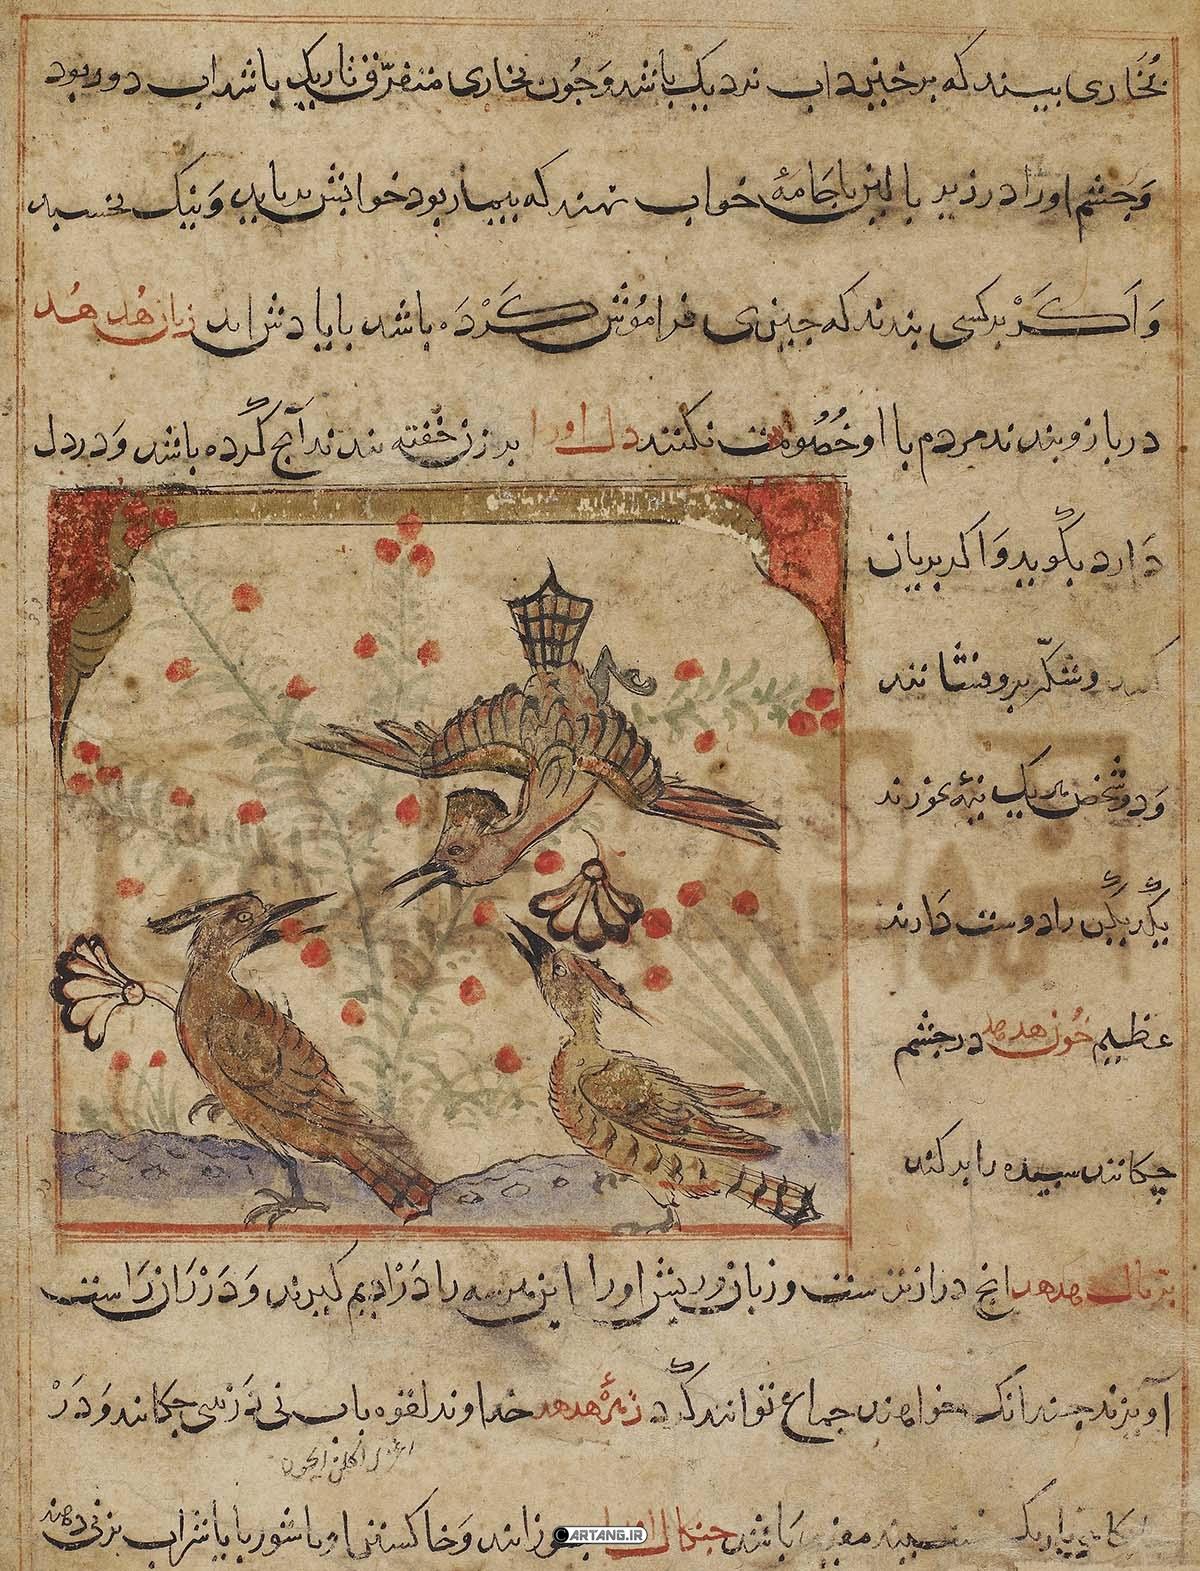 بُخاری بیند که برخیزد اب نزدیک باشد وَجُون بخاری متفرّق تاریک باشد اب دور بود
وَجشم اورا در زیر بالین یا جَامهٔ خواب نهند که بیمار بود خوابش بیاید وَنیک بخسبد
وَاکَرْ بر کسی بندند که جیزی فرامُوش کَرْدَه باشد با یادش اید زبان هُدهُد
در بازو بندند مردم با او خُصُومت نکنند دل اورا بر زن خُفته بندند آنج کرده باشد وَدر دل
دَارد بگوید وَاکر بریان
کنند وشکّر برو فشانند
وَدو شخص هر یک نیمهٔ بخورند
یکدیگر را دوست دَارند
عظیم خُون هدهد در جشم
چکانند سبیده را بر کند
بر بال هدهد انج درازترست وزبان وریش اورا این هر سه را دَر ادیم کیرند وَدَرْ ران رَاست
آویزند جندانک خواهند جماع توانند کرد زَهرهٔ هدهد خداوند لقوه باب در بینی چکانند وَدَرْ
تاریک باشد جنکال اورا بسوزانند وَخاکسترش با شوربا یا شراب بزنی دهند
ARTANG.IR